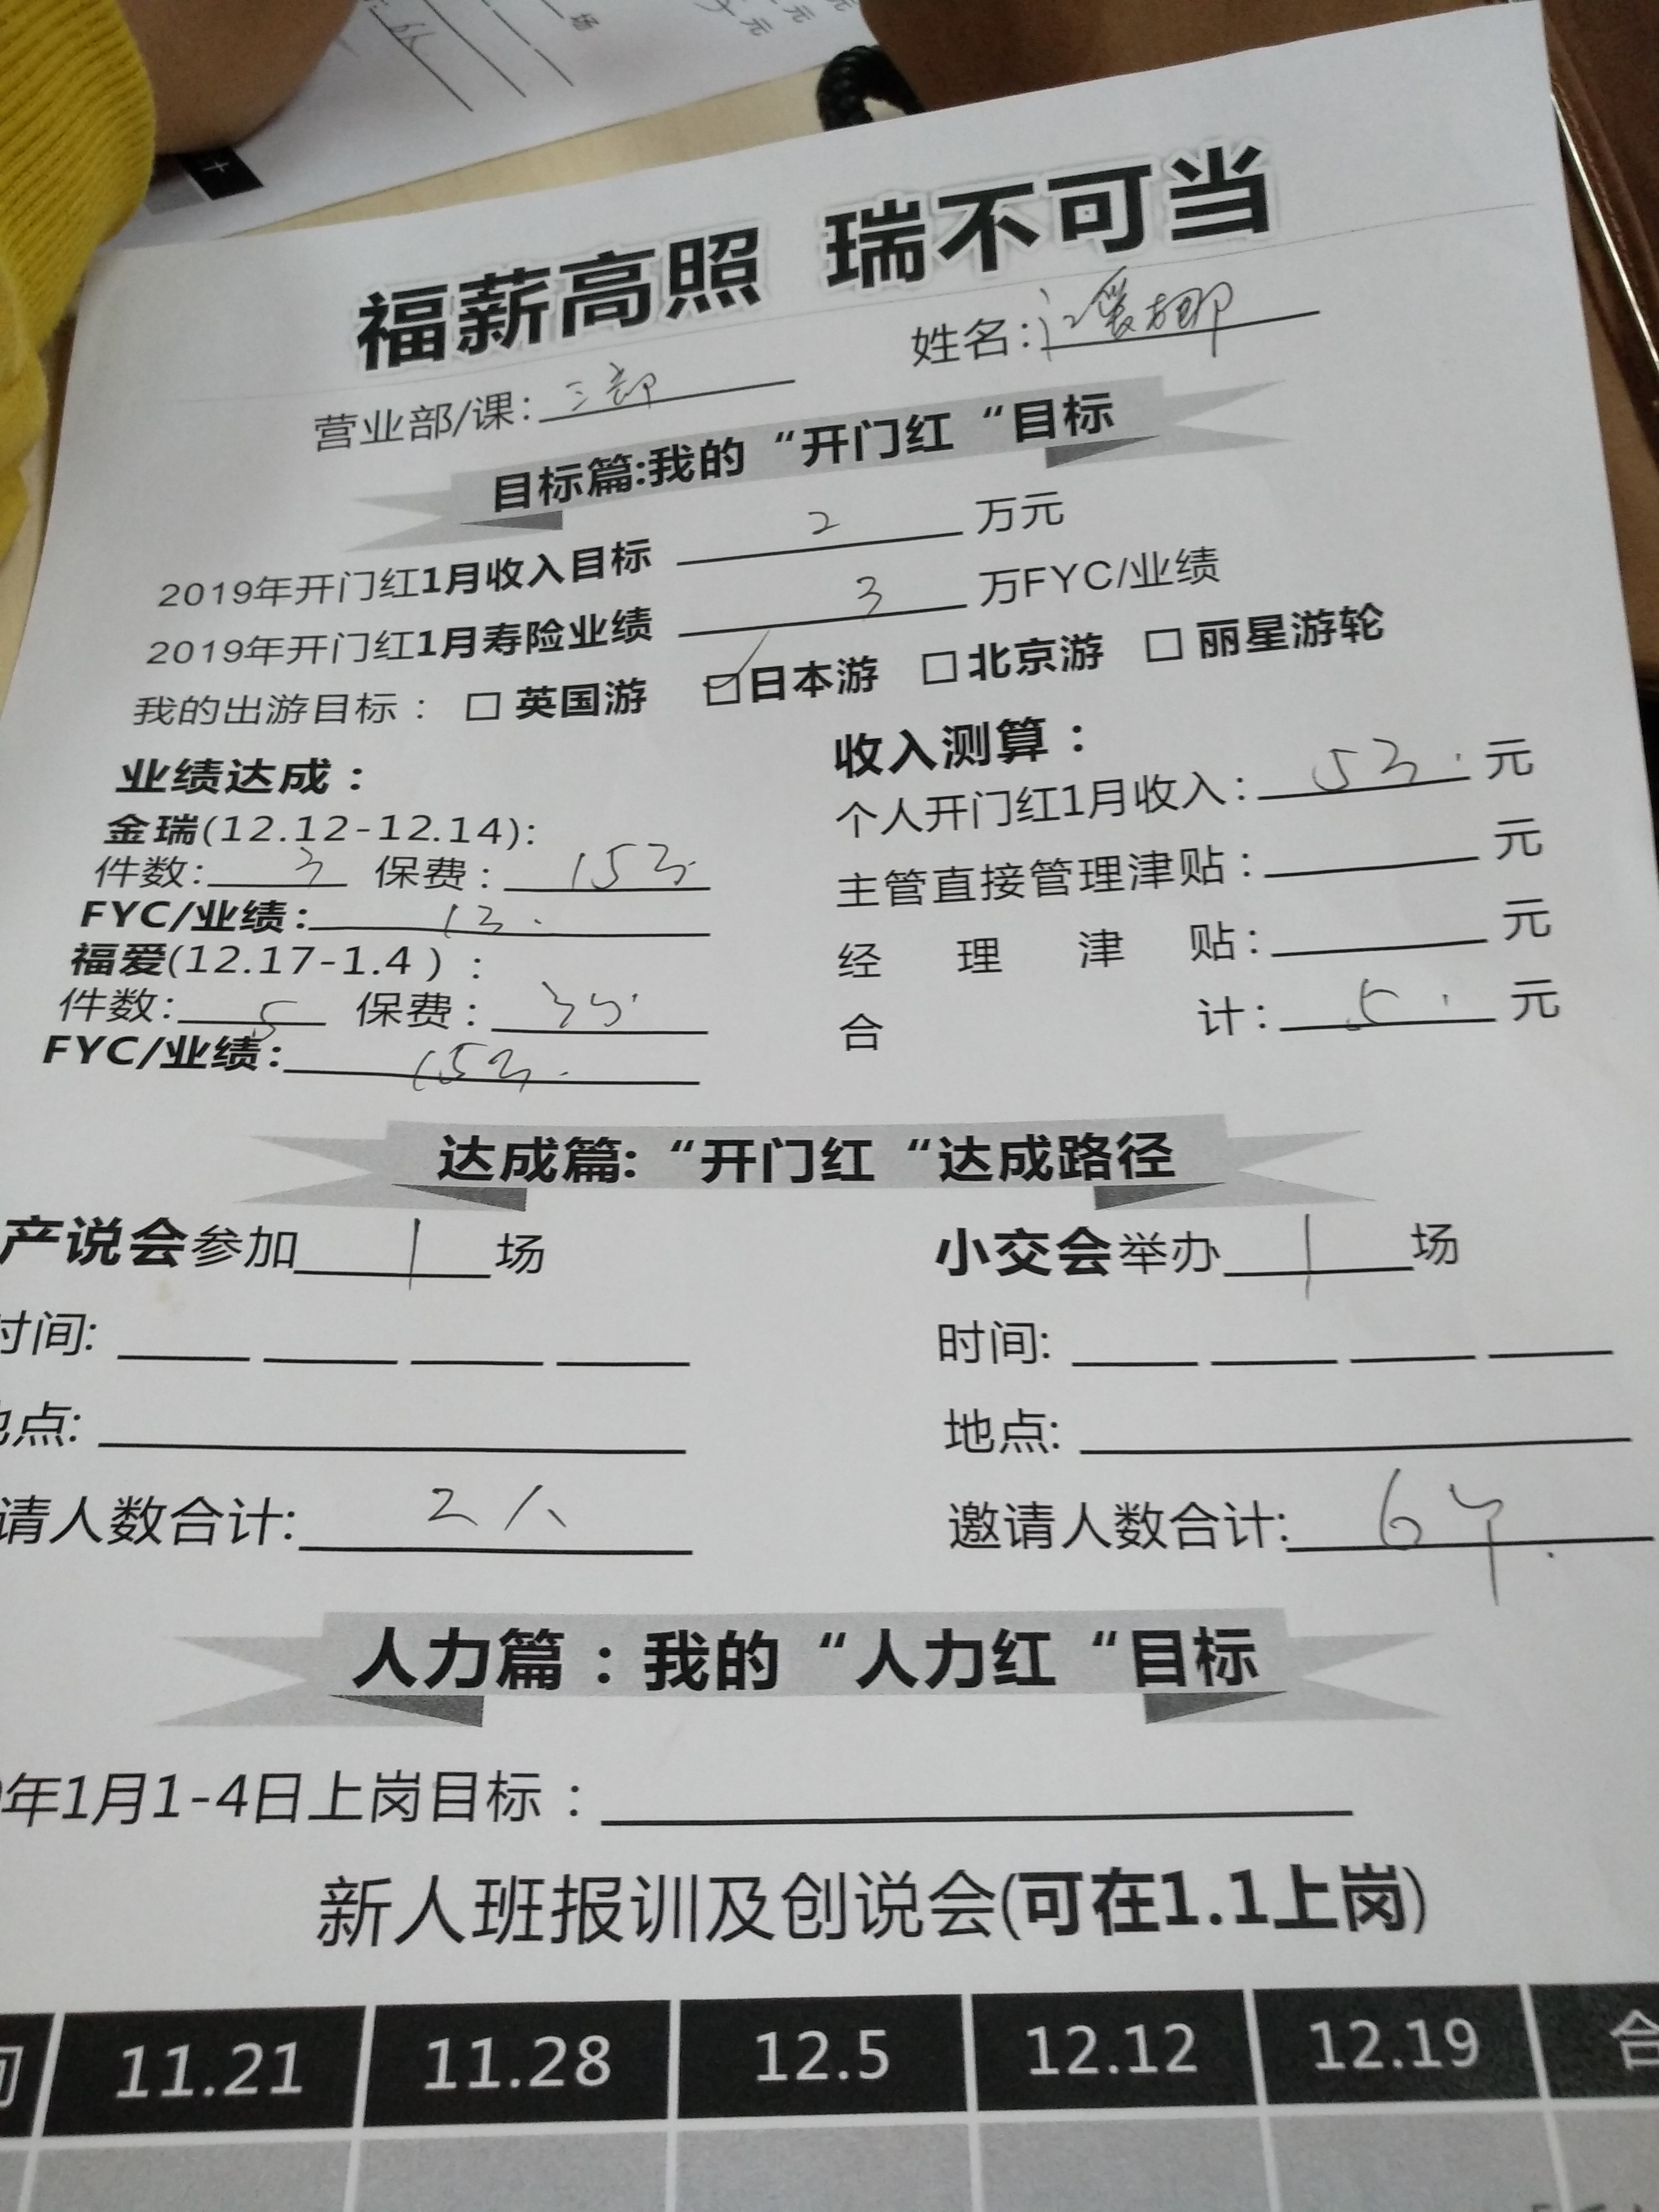 福薪高照 瑞不可当
营业部/课: 三部 姓名:
目标篇:我的“开门红“目标
2019年开门红1月收入目标 2 万元
2019年开门红1月寿险业绩 3 万FYC/业绩
我的出游目标： □ 英国游 ☑日本游 □北京游 □ 丽星游轮
业绩达成： 收入测算：
金瑞(12.12-12.14): 个人开门红1月收入: 5万 元
件数: 3 保费: 15万 主管直接管理津贴: 元
FYC/业绩:
福爱(12.17-1.4): 经理津贴: 元
件数: 5 保费: 合计: 5 元
FYC/业绩:
达成篇:“开门红“达成路径
产说会参加 1 场 小交会举办 1 场
时间: 时间:
地点: 地点:
请人数合计: 2人 邀请人数合计: 6个
人力篇：我的“人力红“目标
年1月1-4日上岗目标：
新人班报训及创说会(可在1.1上岗)
间 11.21 11.28 12.5 12.12 12.19 合